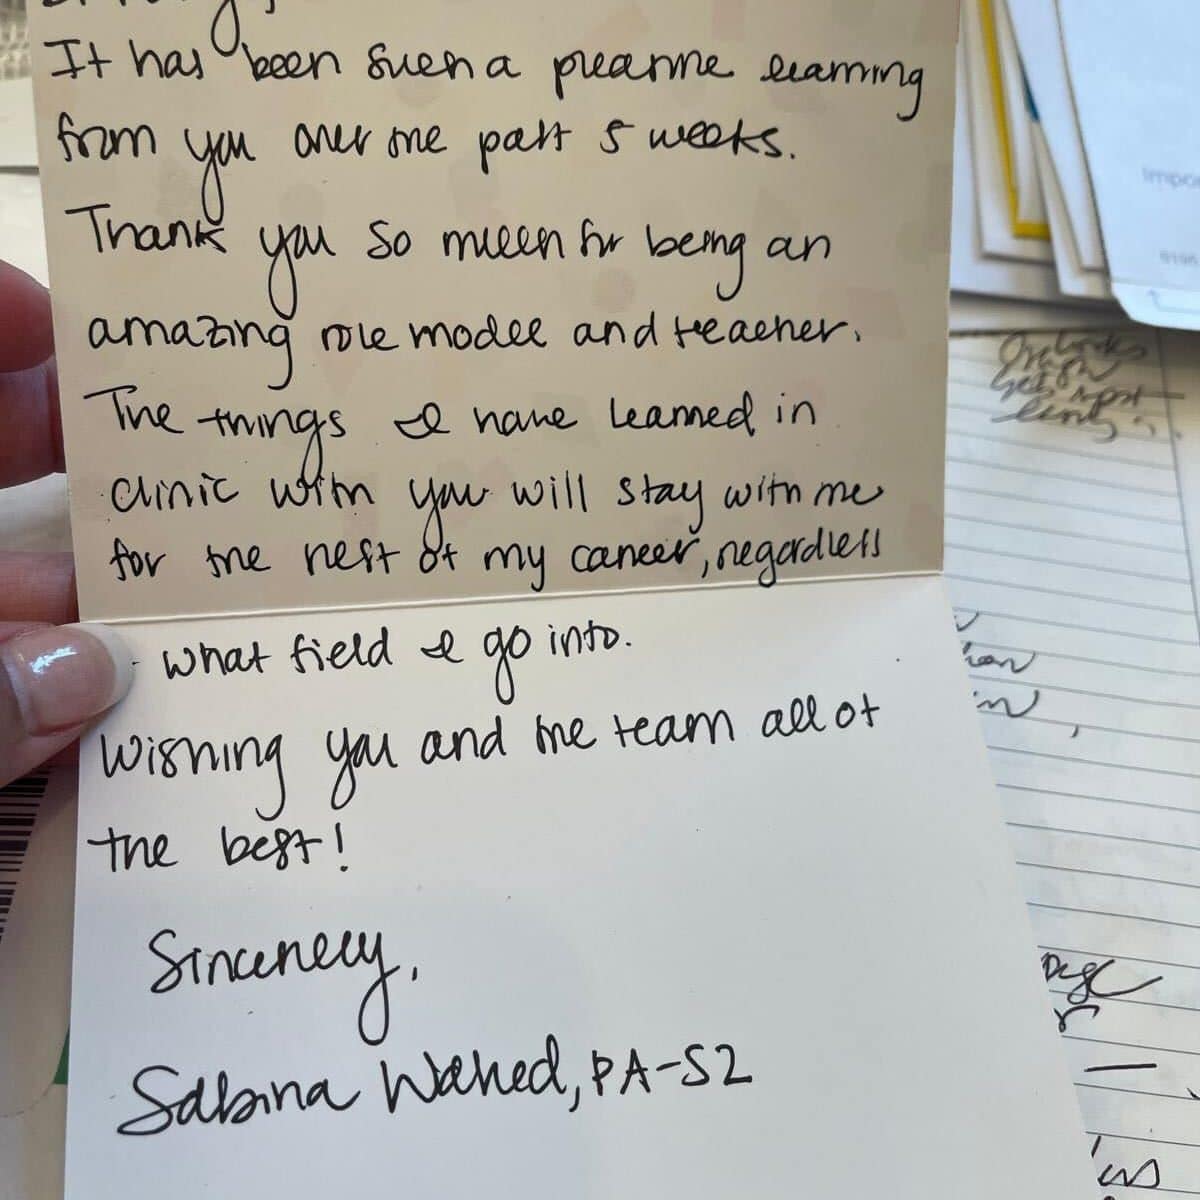 It has been such a pleasure learning
from you over the past 5 weeks.
Thank you so much for being an
amazing role model and teacher.
The things I have learned in
clinic with you will stay with me
for the rest of my career, regardless
what field I go into.
Wishing you and the team all of
the best!
Sincerely,
Sabina Wahed, PA-S2